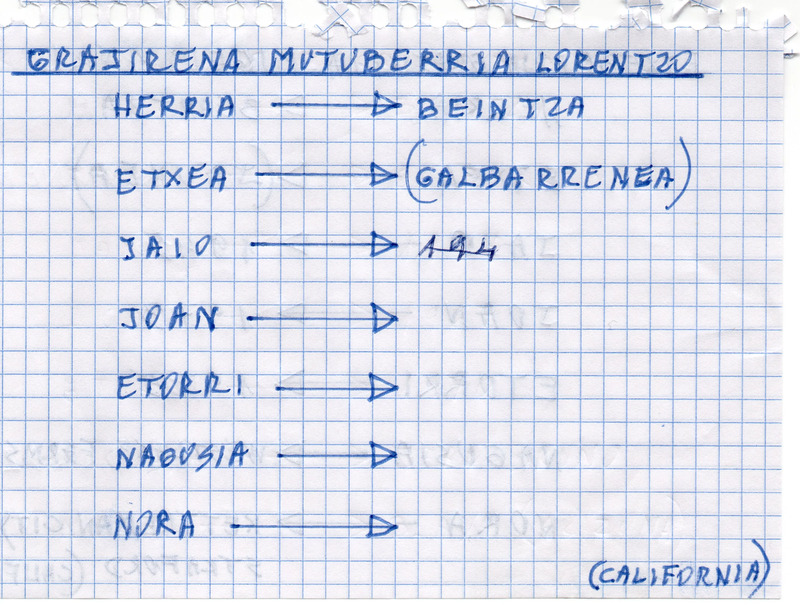 GRAJIRENA MUTUBERRIA LORENTZO
HERRIA → BEINTZA
ETXEA → (GALBARRENEA)
JAIO → 194
JOAN →
ETORRI →
NAGUSIA →
NORA →
(CALIFORNIA)